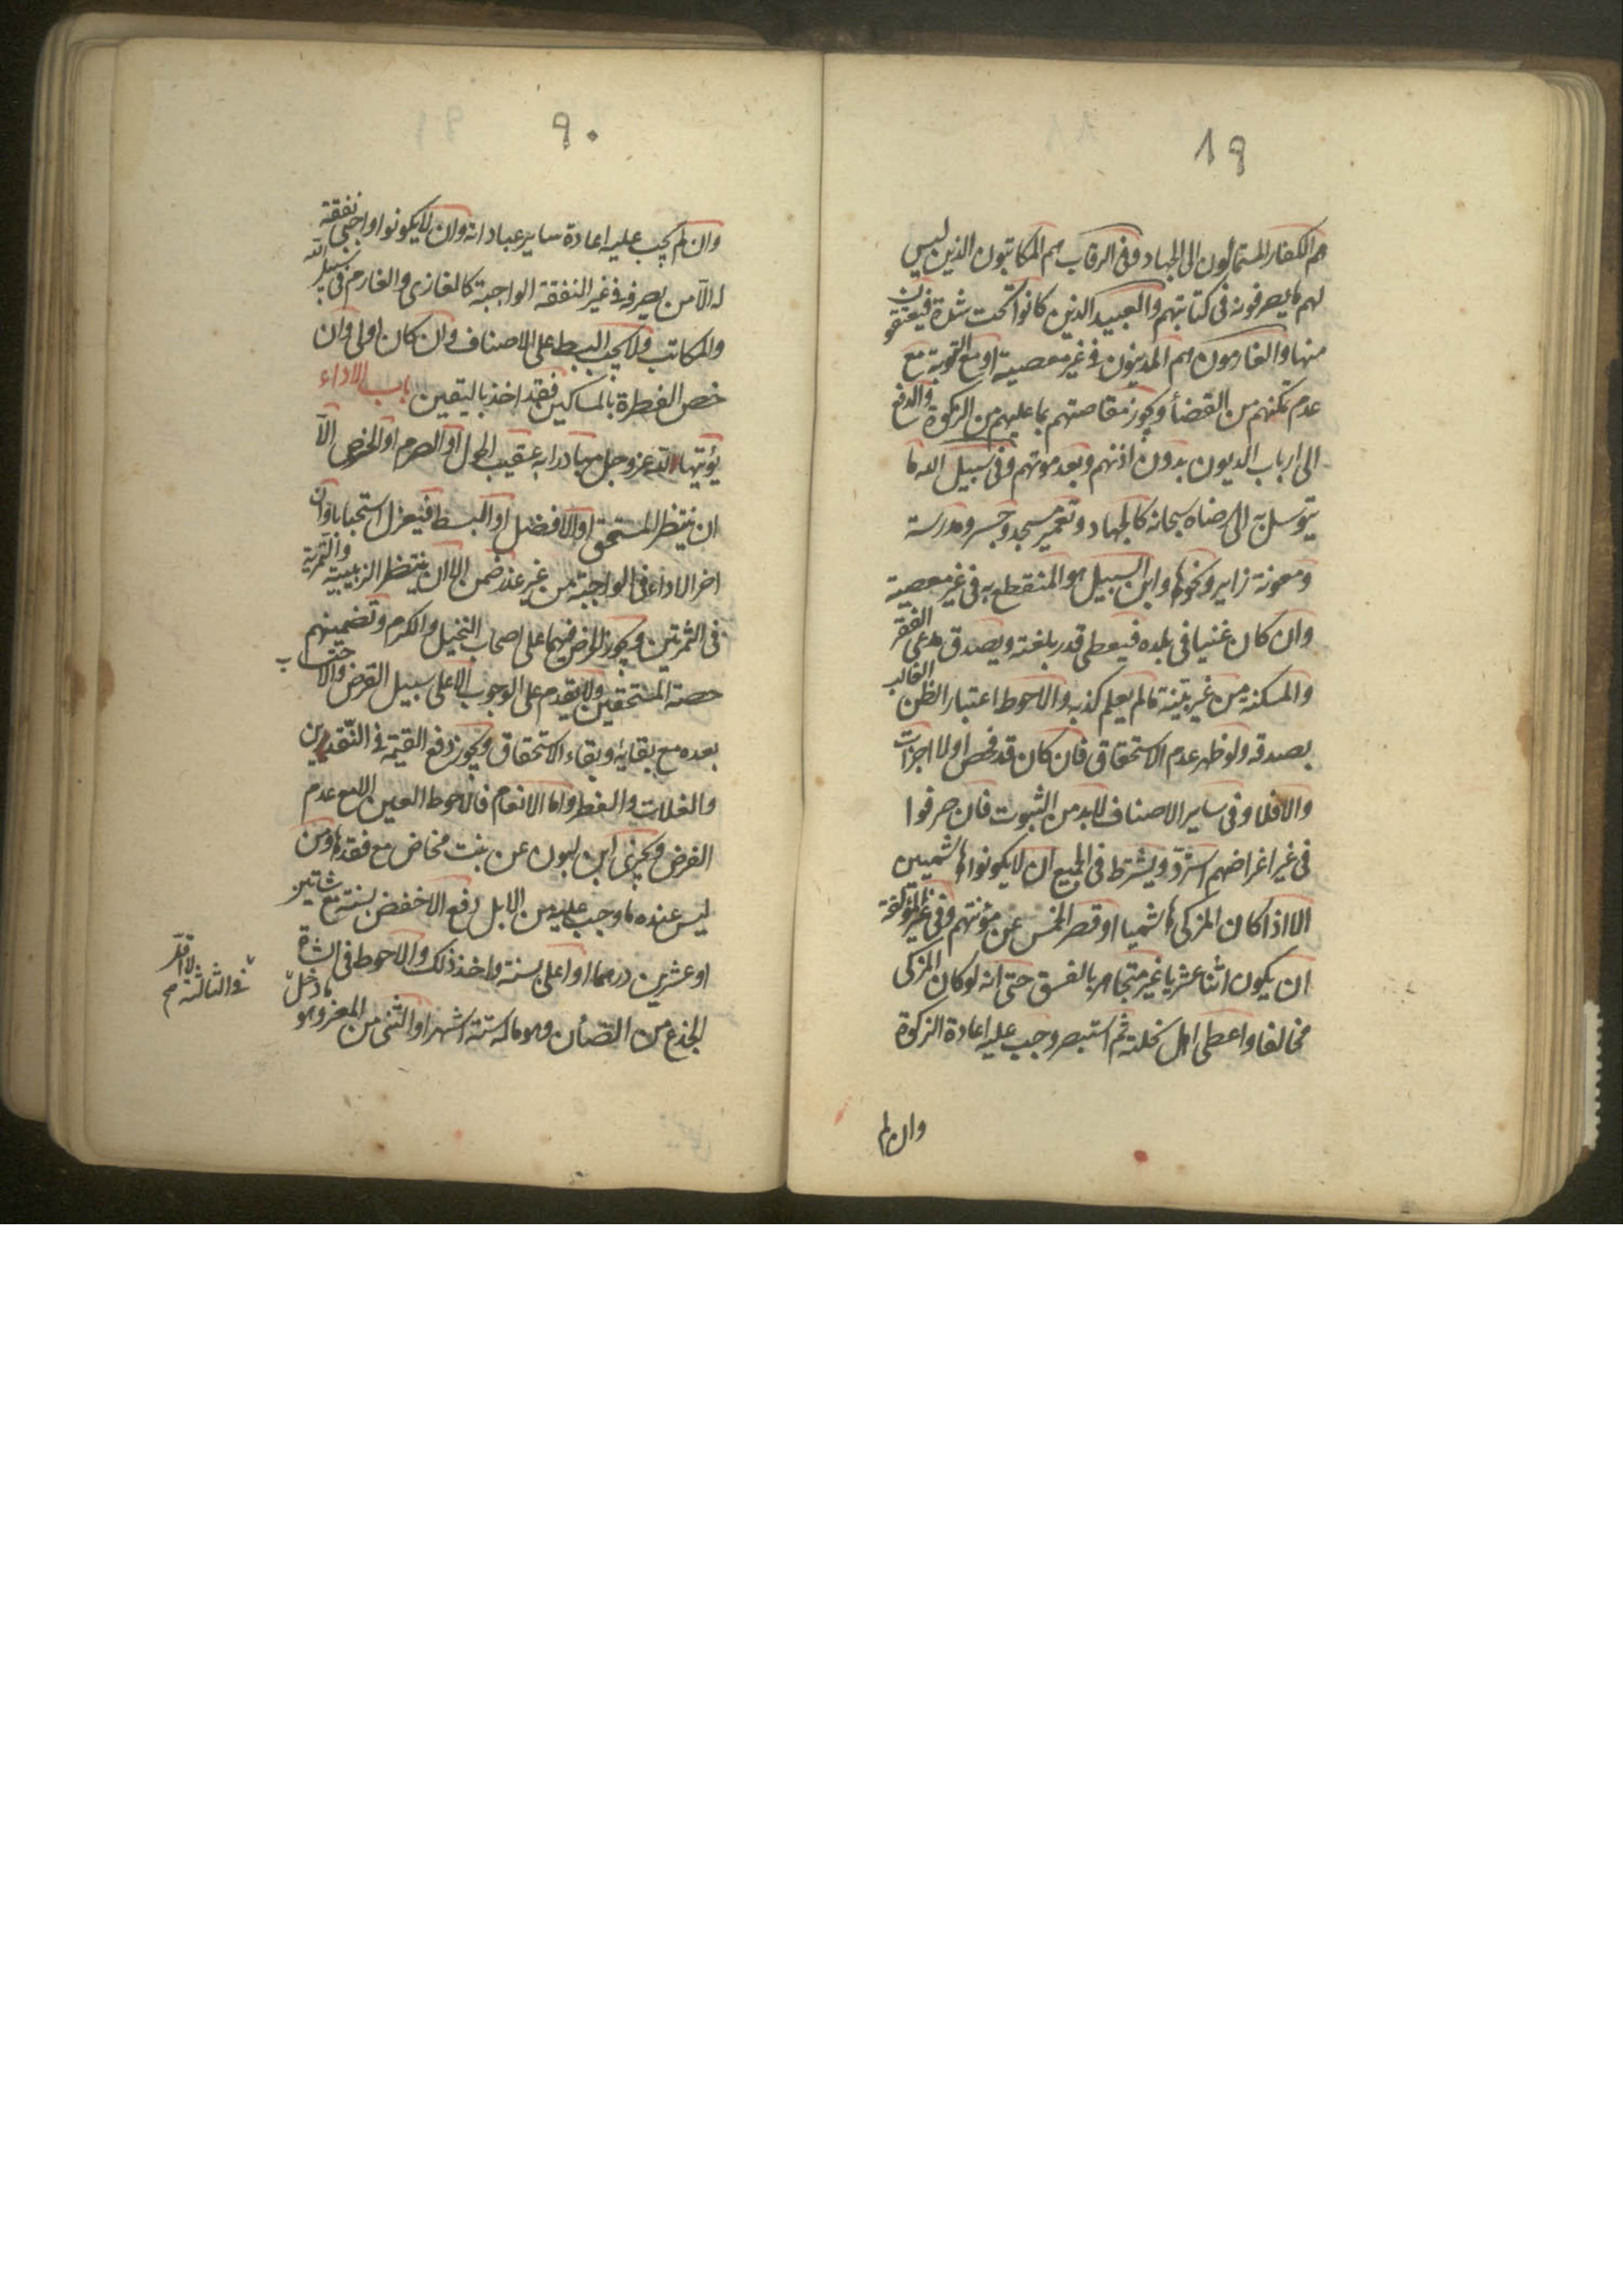 ١٩
هم الكفار المستمالون الى الجهاد وفى الرقاب هم المكاتبون الذين ليس
لهم ما يصرفونه فى كتابتهم والعبيد الذين كانوا تحت شدة فيعتقون
منها والغارمون هم المدينون فى غير معصية او مع التوبة مع
عدم تمكنهم من القضأ ويجوز مقاصتهم بما عليهم من الزكوة والدفع
الى ارباب الديون بدون اذنهم وبعد موتهم وفى سبيل الله ما
يتوسل به الى رضاه سبحانه كالجهاد وتعمير مسجد وجسر ومدرسة
ومعونة زاير ونحوها وابن السبيل هو المنقطع به فى غير معصية
وان كان غنيا فى بلده فيعطى قدر بلغته ويصدق مدعى الفقر
والمسكنة من غير بينة ما لم يعلم كذبه والاحوط اعتبار الظن الغالب
بصدقه ولو ظهر عدم الاستحقاق فان كان قد فحص اولا اجزأت
والا فلا وفى ساير الاصناف لابد من الثبوت فان صرفوا
فى غير اغراضهم استرد ويشترط فى الجميع ان لا يكونوا هاشميين
الا اذا كان المزكى هاشميا او قصر الخمس عن مؤنتهم وفى غير المؤلفة
ان يكون اثنا عشريا غير متجاهر بالفسق حتى انه لو كان المزكى
مخالفا واعطى اهل نحلته ثم استبصر وجب عليه اعادة الزكوة
وان لم
٩٠
وان لم يجب عليه اعادة ساير عباداته وان لا يكونوا واجبى نفقة
له الا من يصرفه فى غير النفقة الواجبة كالغازى والغارم فى سبيل الله
والمكاتب ولا يجب البسط على الاصناف وان كان اولى وان
خص الفطرة بالمساكين فقد اخذ باليقين باب الاداء
يؤتيها لله عز وجل مبادرا به عقيب الحول او الصرم او الخرص الا
ان ينتظر المستحق او الافضل او البسط فيعزل استحبابا وان
اخر الاداء فى الواجبة من غير عذر ضمن الا ان ينتظر الزبيبية والتمرية
فى الثمرتين ويجوز الخرص فيهما على اصحاب النخيل والكرم وتضمينهم
حصة المستحقين ولا يقدم على الوجوب الا على سبيل القرض والاحتساب
بعده مع بقائه وبقاء الاستحقاق ويجوز دفع القيمة فى النقدين
والغلات والفطر واما الانعام فالاحوط العين الا مع عدم
الفرض ويجزى ابن لبون عن بنت مخاض مع فقدها ومن
ليس عنده ما وجب عليه من الابل دفع الاخفض بسنة مع شاتين
او عشرين درهما او اعلى بسنة واخذ ذلك والاحوط فى الشاة
الجذع من الضأن وهو ما له ستة اشهر او الثنى من المعز وهو ما دخل
فى الثالثة